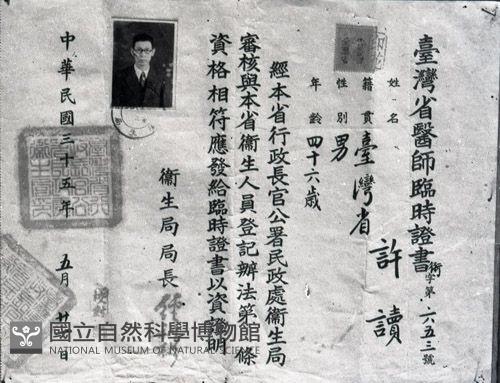 臺灣省醫師臨時證書
衛字第六五三號
姓名 許讀
籍貫 臺灣省
性別 男
年齡 四十六歲
經本省行政長官公署民政處衛生局
審核與本省衛生人員登記辦法第 條
資格相符應發給臨時證書以資證明
衛生局局長 經
中華民國三十五年 五月 廿 日
國立自然科學博物館
NATIONAL MUSEUM OF NATURAL SCIENCE